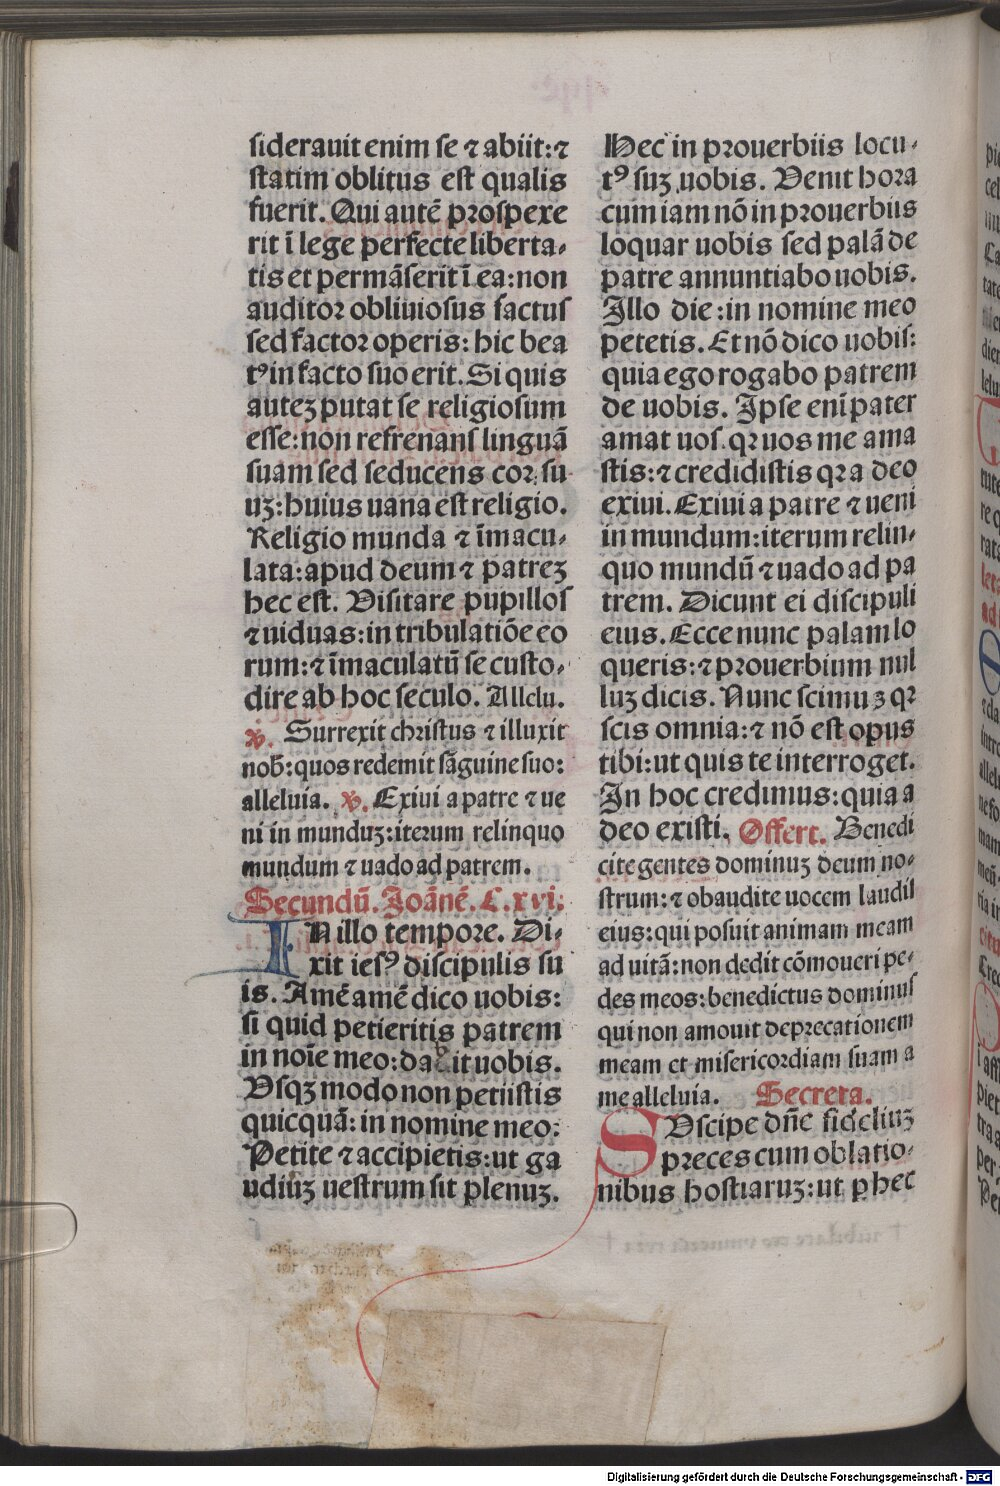 siderauit enim se ⁊ abiit:⁊
statim oblitus est qualis
fuerit. Qui autē prospexe
rit ī lege perfecte liberta⸗
tis et permāserit ī ea:non
auditor obliuiosus factus
sed factor operis: hic bea
tꝰ in facto suo erit. Si quis
auteꝫ putat se religiosum
esse: non refrenans linguā
suam sed seducens cor su
uꝫ: huius uana est religio.
Religio munda ⁊ īmacu⸗
lata: apud deum ⁊ patreꝫ
hec est. Visitare pupillos
⁊ uiduas: in tribulatiōe eo
rum: ⁊ īmaculatū se custo⸗
dire ab hoc seculo. Allelu.
℣. Surrexit christus ⁊ illuxit
nob̄: quos redemit sāguine suo:
alleluia. ℣. Exiui a patre ⁊ ue
ni in munduꝫ: iterum relinquo
mundum ⁊ uado ad patrem.
Secundū. Joānē. C. xvi.
IN illo tempore. Di⸗
xit iesꝰ discipulis su
is. Amē amē dico uobis:
si quid petieritis patrem
in noīe meo: dabit uobis.
Vsqꝫ modo non petiistis
quicquā: in nomine meo:
Petite ⁊ accipietis: ut ga
udiūꝫ uestrum sit plenuꝫ.
Hec in prouerbiis locu⸗
tꝰ suꝫ uobis. Venit hora
cum iam nō in prouerbiis
loquar uobis sed palā de
patre annuntiabo uobis.
Illo die: in nomine meo
petetis. Et nō dico uobis:
quia ego rogabo patrem
de uobis. Ipse eni pater
amat uos. qꝛ uos me ama
stis: ⁊ credidistis qꝛ a deo
exiui. Exiui a patre ⁊ ueni
in mundum: iterum relin⸗
quo mundū ⁊ uado ad pa
trem. Dicunt ei discipuli
eius. Ecce nunc palam lo
queris: ⁊ prouerbium nul
luꝫ dicis. Nunc scimuꝫ qꝛ
scis omnia: ⁊ nō est opus
tibi: ut quis te interroget.
In hoc credimus: quia a
deo existi. Offert. Benedi
cite gentes dominuꝫ deum no⸗
strum: ⁊ obaudite uocem laudis
eius: qui posuit animam meam
ad uitā: non dedit cōmoueri pe⸗
des meos: benedictus dominus
qui non amouit deprecationem
meam et misericordiam suam a
me alleluia. Secreta.
SVscipe dn̄e fideliuꝫ
preces cum oblatio⸗
nibus hostiaruꝫ: ut ꝑ hec
Digitalisierung gefördert durch die Deutsche Forschungsgemeinschaft - DFG